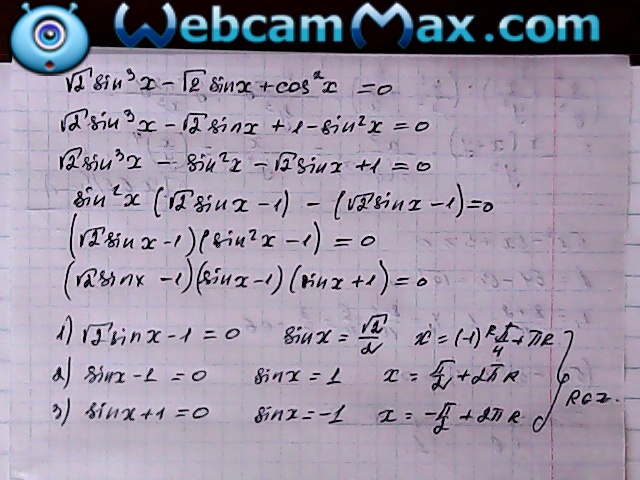 WebcamMax.com
√2 sin³x − √2 sinx + cos²x = 0
√2 sin³x − √2 sinx + 1 − sin²x = 0
√2 sin³x − sin²x − √2 sinx + 1 = 0
sin²x (√2 sinx − 1) − (√2 sinx − 1) = 0
(√2 sinx − 1)(sin²x − 1) = 0
(√2 sinx − 1)(sinx − 1)(sinx + 1) = 0
1) √2 sinx − 1 = 0 sinx = √2/2 x = (−1)ᵏ π/4 + πk
2) sinx − 1 = 0 sinx = 1 x = π/2 + 2πk
3) sinx + 1 = 0 sinx = −1 x = −π/2 + 2πk
k∈z.